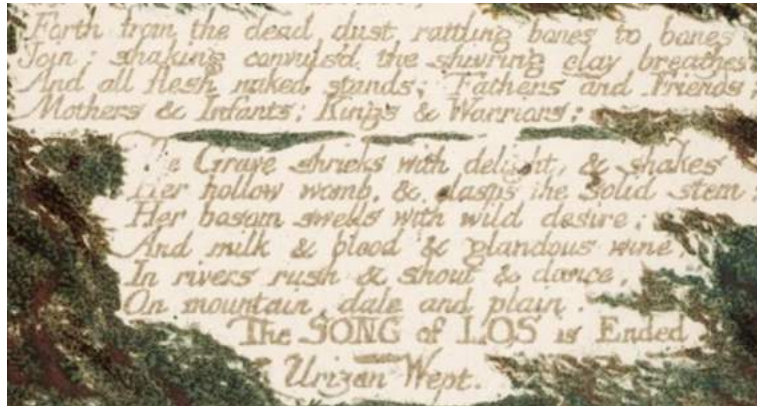 Forth from the dead dust rattling bones to bones
Join: shaking convuls'd the shivring clay breathes
And all flesh naked stands: Fathers and Friends;
Mothers & Infants; Kings & Warriors:
The Grave shrieks with delight, & shakes
Her hollow womb, & clasps the solid stem:
Her bosom swells with wild desire:
And milk & blood & glandous wine.
In rivers rush & shout & dance,
On mountain, dale and plain.
The SONG of LOS is Ended.
Urizen Wept.